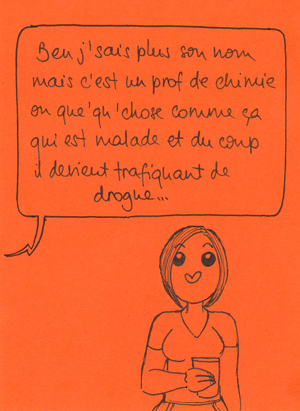 Ben j'sais plus son nom
mais c'est un prof de chimie
ou que'qu'chose comme ça
qui est malade et du coup
il devient trafiquant de
drogue...